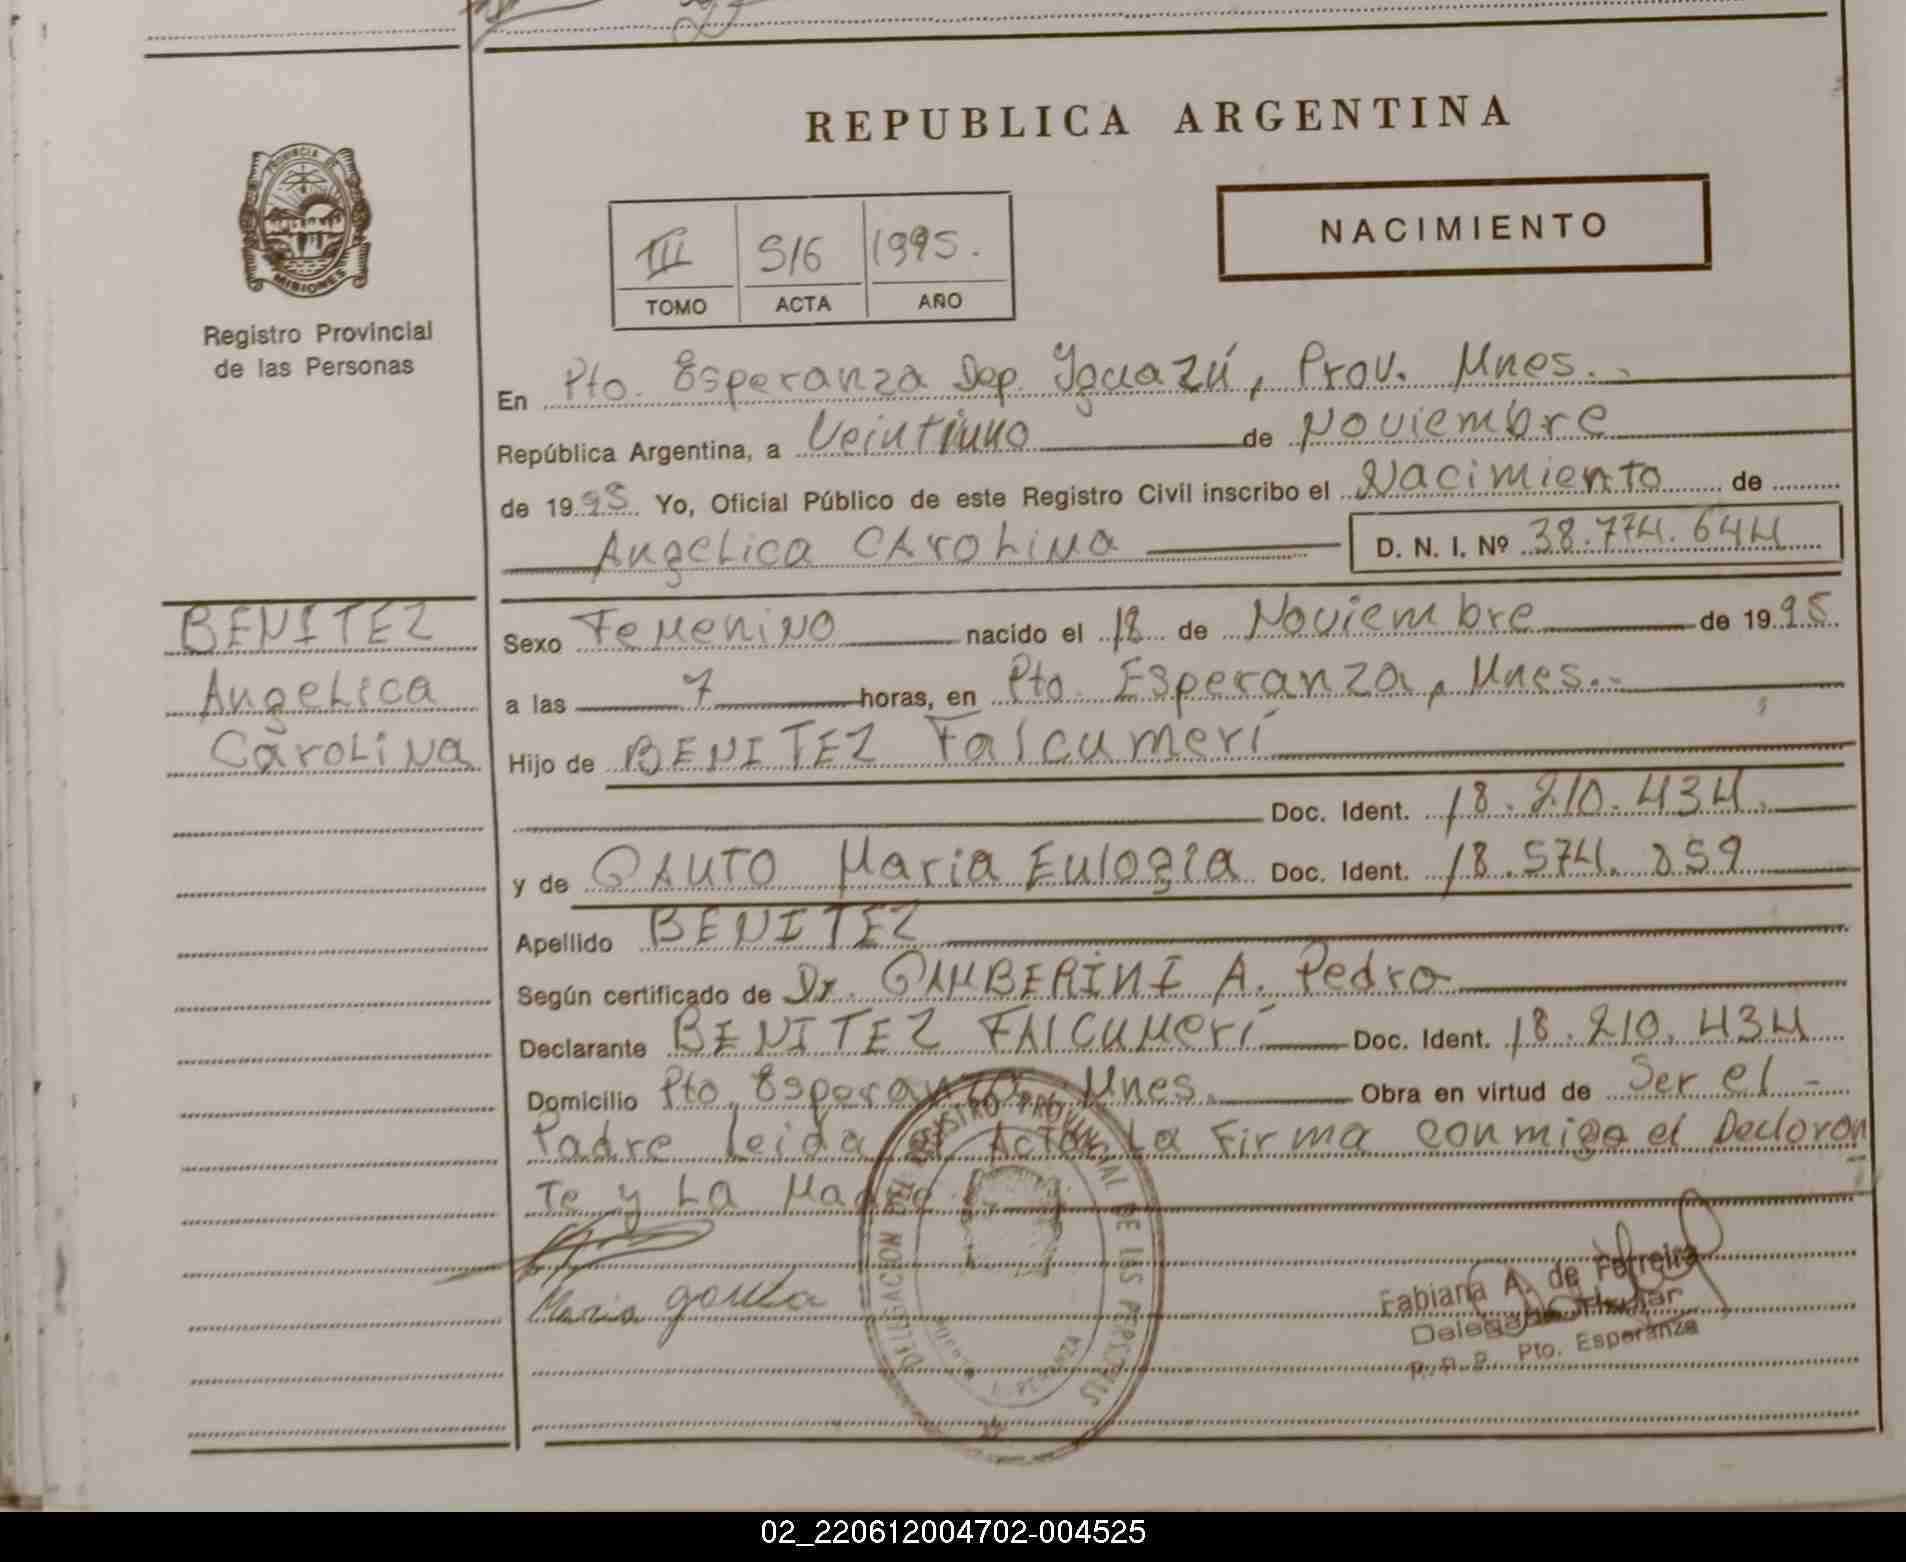 REPUBLICA ARGENTINA
PROVINCIA DE MISIONES
Registro Provincial
de las Personas
NACIMIENTO
III 516 1995.
TOMO ACTA AÑO
En Pto. Esperanza Dep. Iguazú, Prov. Mnes.
República Argentina, a Veintiuno de Noviembre
de 1995 Yo, Oficial Público de este Registro Civil inscribo el Nacimiento de
Angelica Carolina D. N. I. Nº 38.774.644
BENITEZ
Angelica
Carolina
Sexo Femenino nacido el 18 de Noviembre de 1995.
a las 7 horas, en Pto. Esperanza, Mnes.
Hijo de BENITEZ Falcumerí
Doc. Ident. 18.210.434.
y de GAUTO Maria Eulogia Doc. Ident. 18.574.059
Apellido BENITEZ
Según certificado de Dr. GAMBERINI A. Pedro
Declarante BENITEZ FALCUMERÍ Doc. Ident. 18.210.434
Domicilio Pto. Esperanza Mnes. Obra en virtud de Ser el -
Padre leida el Acta La Firma conmigo el Declaran
Te y La Madre
Maria
DELEGACION DEL REGISTRO PROVINCIAL DE LAS PERSONAS
Fabiana A. de Ferreira
Delegada Titular
R. P. P. Pto. Esperanza
02_220612004702-004525